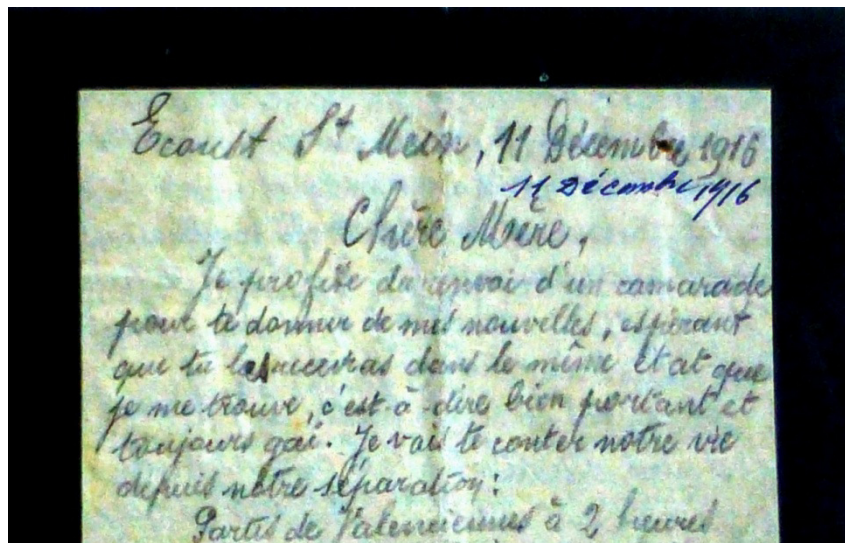 Ecoust St Mein, 11 Décembre 1916
11 Décembre 1916
Chère Mère,
Je profite du renvoi d'un camarade
pour te donner de mes nouvelles, espérant
que tu les recevras dans le même état que
je me trouve, c'est-à-dire bien portant et
toujours gai. Je vais te conter notre vie
depuis notre séparation :
Partis de Valenciennes à 2 heures